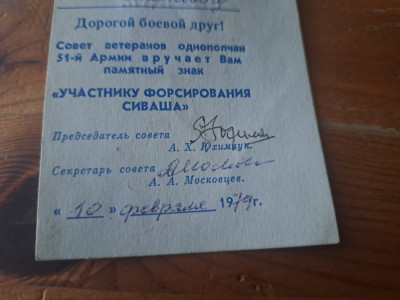 Дорогой боевой друг!
Совет ветеранов однополчан
51-й Армии вручает Вам
памятный знак
«УЧАСТНИКУ ФОРСИРОВАНИЯ
СИВАША»
Председатель совета
А. Х. Юхимчук.
Секретарь совета
А. А. Московцев.
« 10 » февраля 1974г.